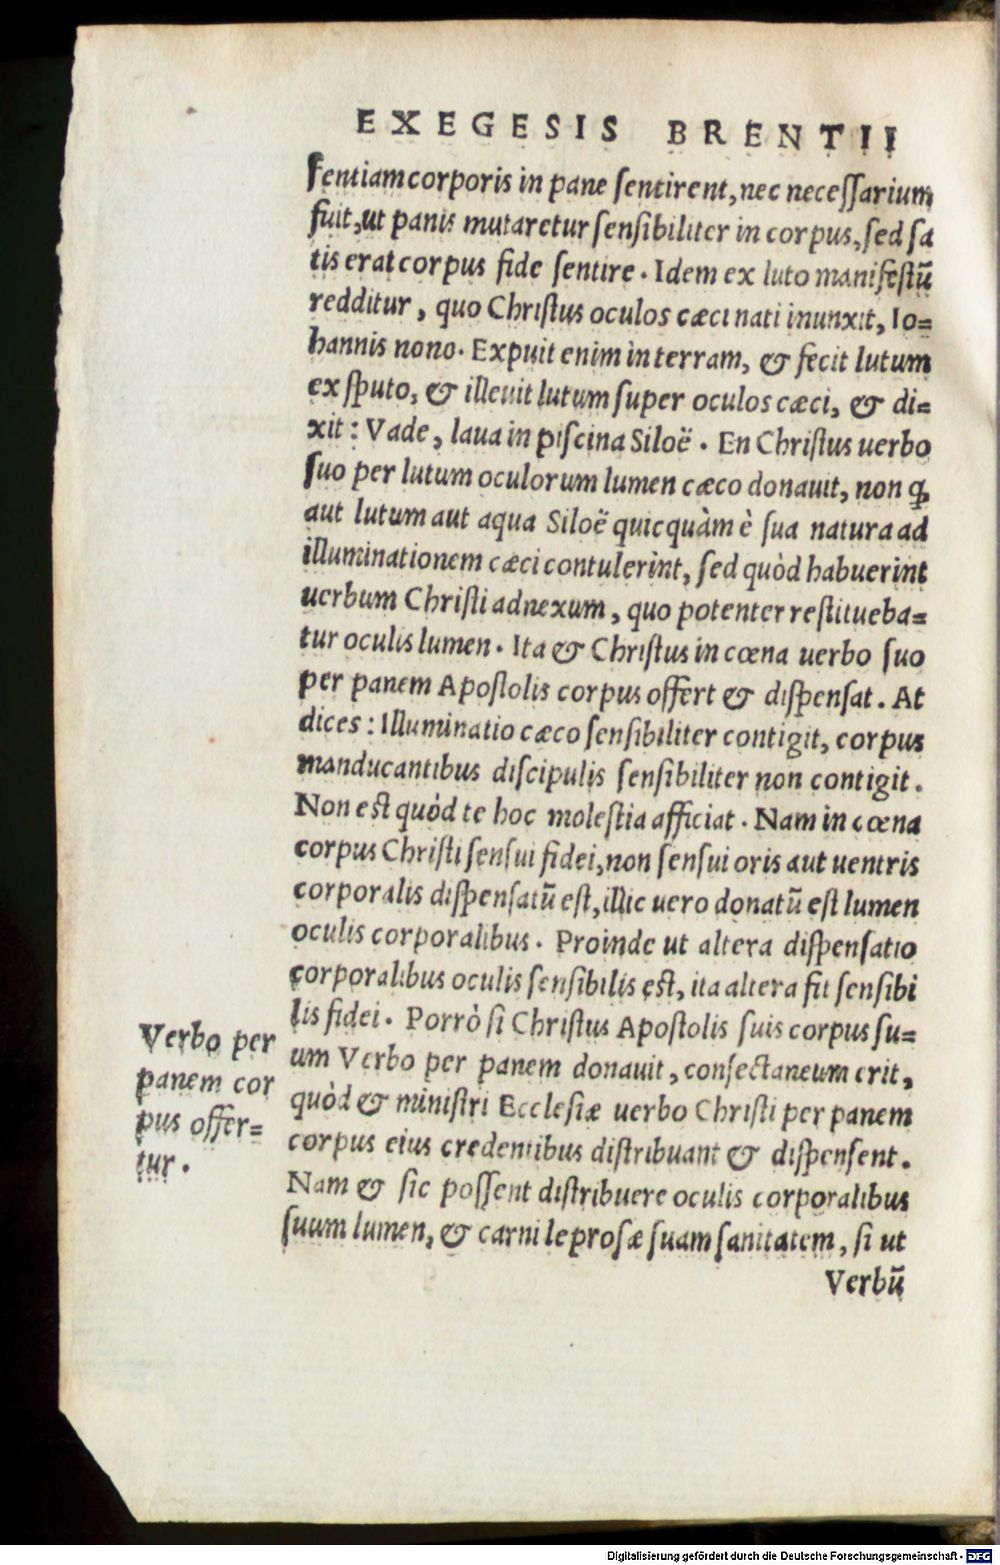 EXEGESIS BRENTII
ſentiam corporis in pane ſentirent, nec neceſſarium
fuit, ut panis mutaretur ſenſibiliter in corpus, ſed ſa
tis erat corpus fide ſentire. Idem ex luto manifeſtũ
redditur, quo Chriſtus oculos cæci nati inunxit, Io=
hannis nono. Expuit enim in terram, & fecit lutum
ex ſputo, & illeuit lutum ſuper oculos cæci, & di=
xit: Vade, laua in piſcina Siloë. En Chriſtus uerbo
ſuo per lutum oculorum lumen cæco donauit, non ꝙ
aut lutum aut aqua Siloë quicquàm è ſua natura ad
illuminationem cæci contulerint, ſed quòd habuerint
uerbum Chriſti adnexum, quo potenter reſtitueba=
tur oculis lumen. Ita & Chriſtus in cœna uerbo ſuo
per panem Apoſtolis corpus offert & diſpenſat. At
dices: Illuminatio cæco ſenſibiliter contigit, corpus
manducantibus diſcipulis ſenſibiliter non contigit.
Non eſt quòd te hoc moleſtia afficiat. Nam in cœna
corpus Chriſti ſenſui fidei, non ſenſui oris aut uentris
corporalis diſpenſatũ eſt, illic uero donatũ eſt lumen
oculis corporalibus. Proinde ut altera diſpenſatio
corporalibus oculis ſenſibilis eſt, ita altera fit ſenſibi
lis fidei. Porrò ſi Chriſtus Apoſtolis ſuis corpus ſu=
um Verbo per panem donauit, conſectaneum erit,
quòd & miniſtri Eccleſiæ uerbo Chriſti per panem
corpus eius credentibus diſtribuant & diſpenſent.
Nam & ſic poſſent diſtribuere oculis corporalibus
ſuum lumen, & carni leproſæ ſuam ſanitatem, ſi ut
Verbũ
Verbo per
panem cor
pus offer=
tur.
Digitalisierung gefördert durch die Deutsche Forschungsgemeinschaft - DFG